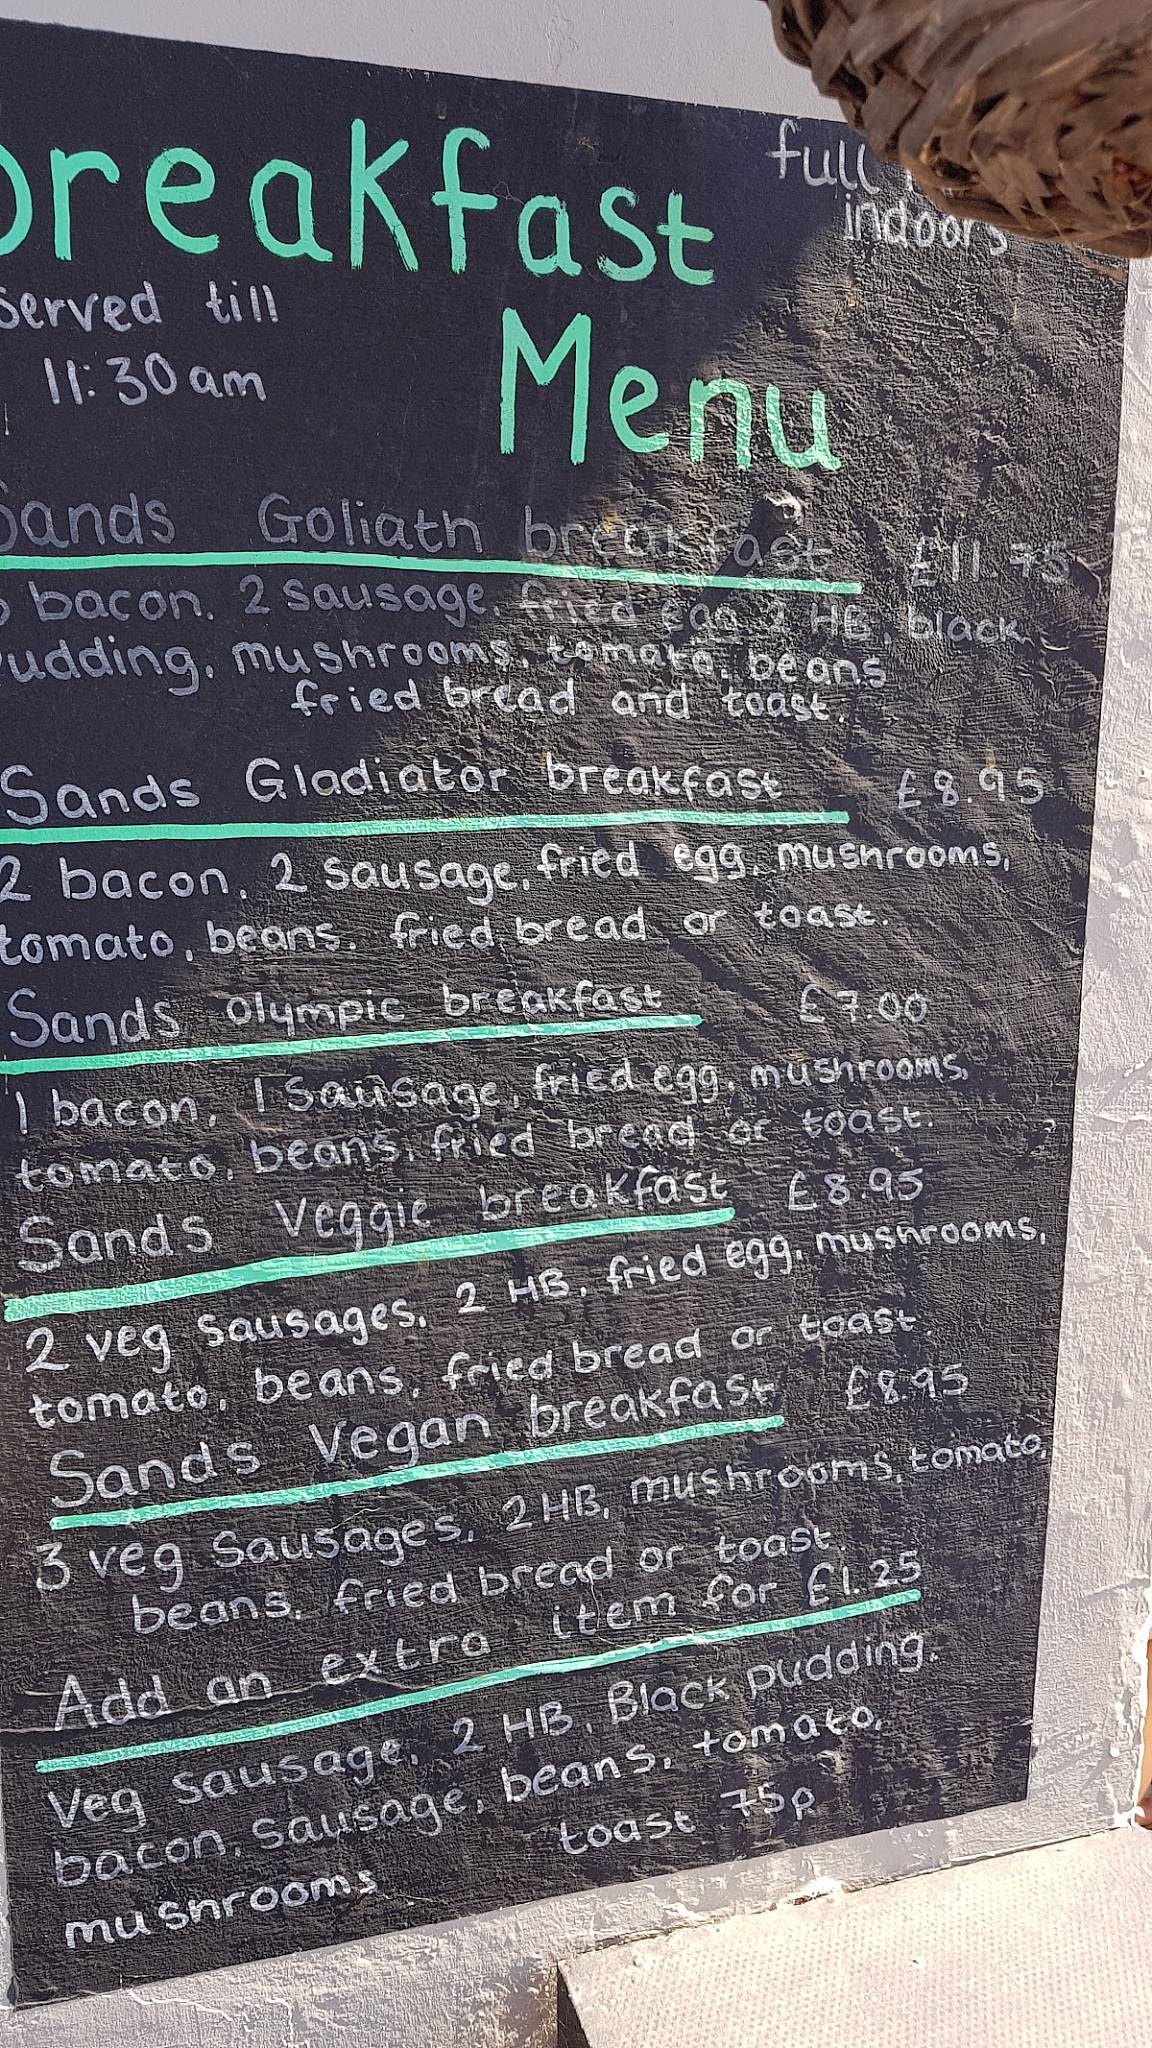 breakfast
full
indoors
Served till
11:30am
Menu
Sands Goliath breakfast £11.75
bacon, 2 sausage, fried egg, 2 HB, black
pudding, mushrooms, tomato, beans
fried bread and toast.
Sands Gladiator breakfast £8.95
2 bacon, 2 sausage, fried egg, mushrooms,
tomato, beans. fried bread or toast.
Sands olympic breakfast £7.00
1 bacon, 1 sausage, fried egg, mushrooms,
tomato, beans, fried bread or toast.
Sands Veggie breakfast £8.95
2 veg sausages, 2 HB, fried egg, mushrooms,
tomato, beans, fried bread or toast.
Sands Vegan breakfast £8.95
3 veg Sausages, 2 HB, mushrooms, tomato,
beans, fried bread or toast.
Add an extra item for £1.25
Veg sausage, 2 HB, Black pudding,
bacon, sausage, beans, tomato,
mushrooms toast 75p